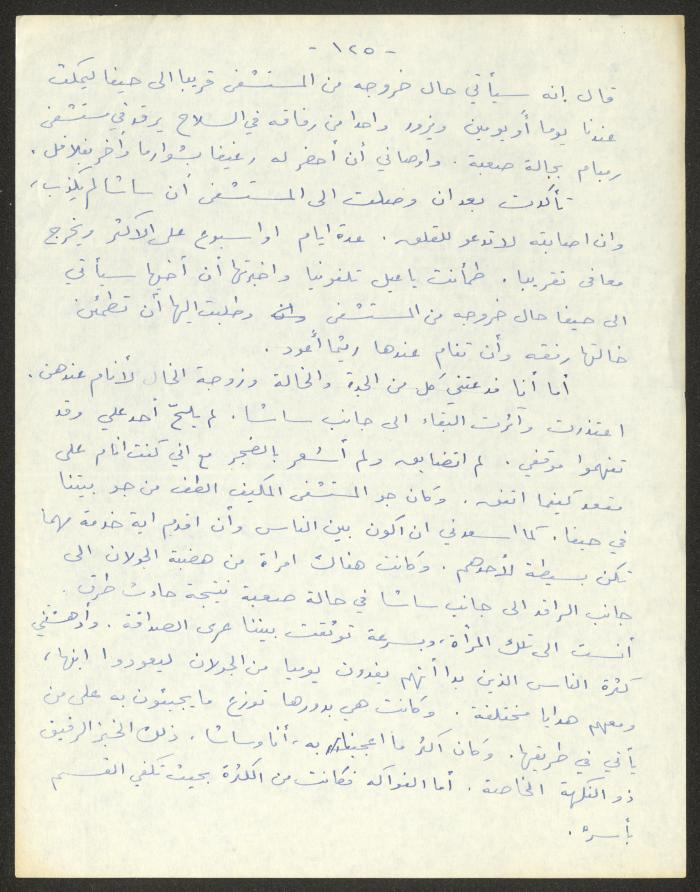 - ١٢٥ -
قال إنه سيأتي حال خروجه من المستشفى قريبا الى حيفا ليمكث
عندنا يوما أو يومين ويزور واحدا من رفاقه في السلاح يرقد في مستشفى
رمبام بحالة صعبة. واوصاني أن أحضر له رغيفا بشوارما وآخر بفلافل.
تأكدت بعد ان وصلت الى المستشفى أن ساشا لم يكذب،
وان اصابته لا تدعو للقلق. عدة ايام او اسبوع على الاكثر ويخرج
معافى تقريبا. طمأنت ياعيل تلفونيا واخبرتها أن أخيها سيأتي
الى حيفا حال خروجه من المستشفى وطلبت اليها أن تطمئن
خالتها رفقه وأن تنام عندها ريثما أعود.
أما أنا فدعتني كل من الجدة والخالة وزوجة الخال لأنام عندهن.
اعتذرت وآثرت البقاء الى جانب ساشا. لم يلحّ أحد علي وقد
تفهموا موقفي. لم اتضايق ولم أشعر بالضجر مع اني كنت انام على
مقعد كيفما اتفق. وكان جو المستشفى المكيف الطف من جو بيتنا
في حيفا. كما اسعدني ان اكون بين الناس وأن اقدم اية خدمة مهما
تكن بسيطة لأحدهم. وكانت هناك امرأة من هضبة الجولان الى
جانب الراقد الى جانب ساشا في حالة صعبة نتيجة حادث طرق.
أنست الى تلك المرأة، وبسرعة توثقت بيننا عرى الصداقة. وأدهشتني
كثرة الناس الذين بدا أنهم يفدون يوميا من الجولان ليعودوا ابنها،
ومعهم هدايا مختلفة. وكانت هي بدورها توزع ما يجيئون به على من
يأتي في طريقها. وكان اكثر ما اعجبنا به، أنا وساشا، ذلك الخبز الرقيق
ذو النكهة الخاصة. أما الفواكه فكانت من الكثرة بحيث تكفي القسم
بأسره.